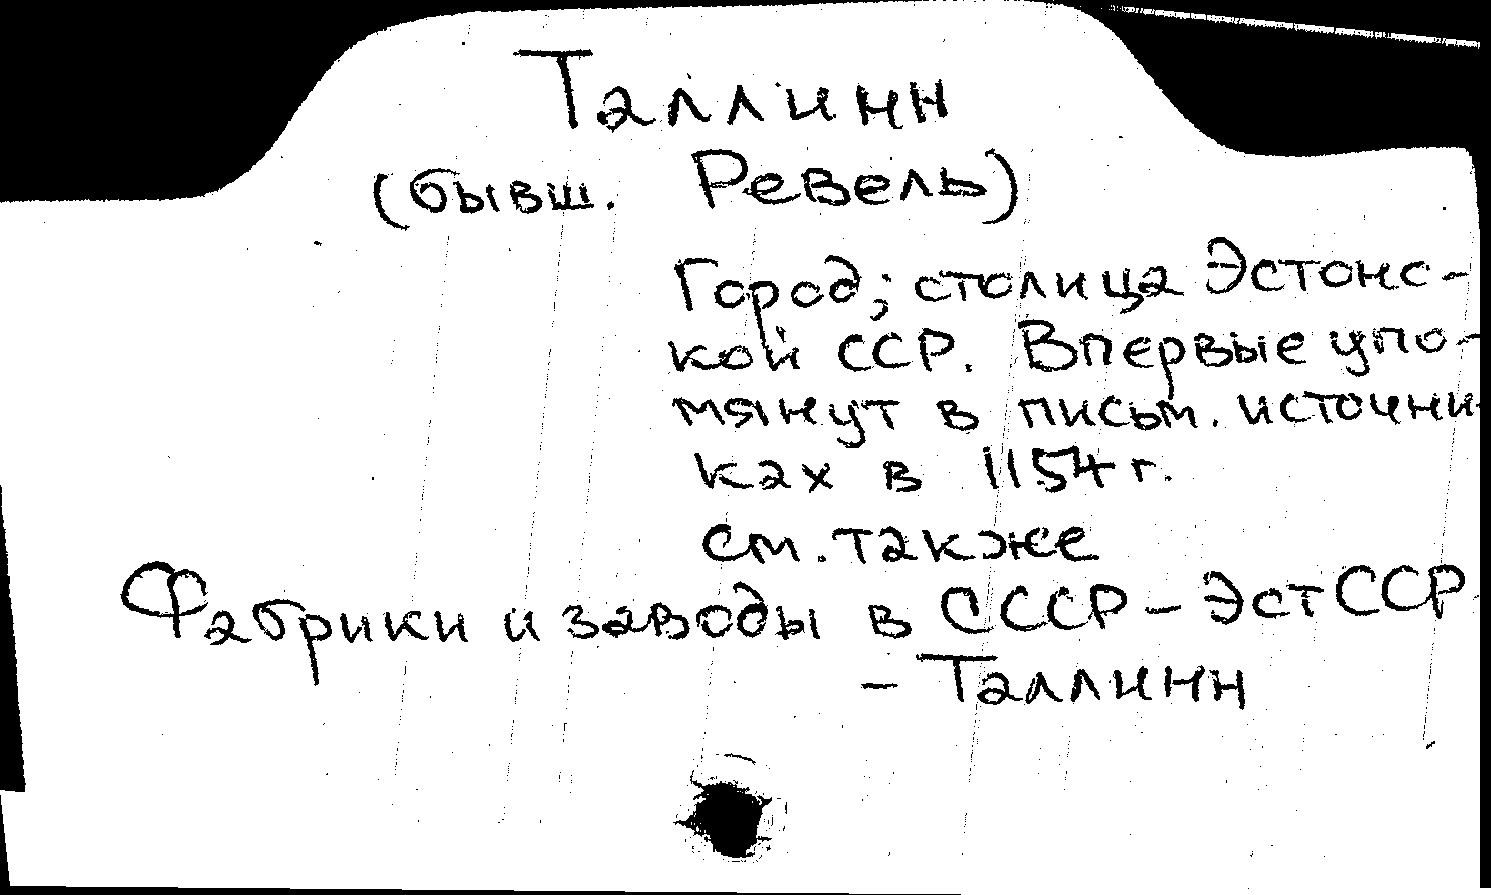 Таллинн
(бывш. Ревель)
Город; столица Эстонс-
кой ССР. Впервые упо-
мянут в письм. источни-
ках в 1154 г.
см. также
Фабрики и заводы в СССР – ЭстССР
– Таллинн